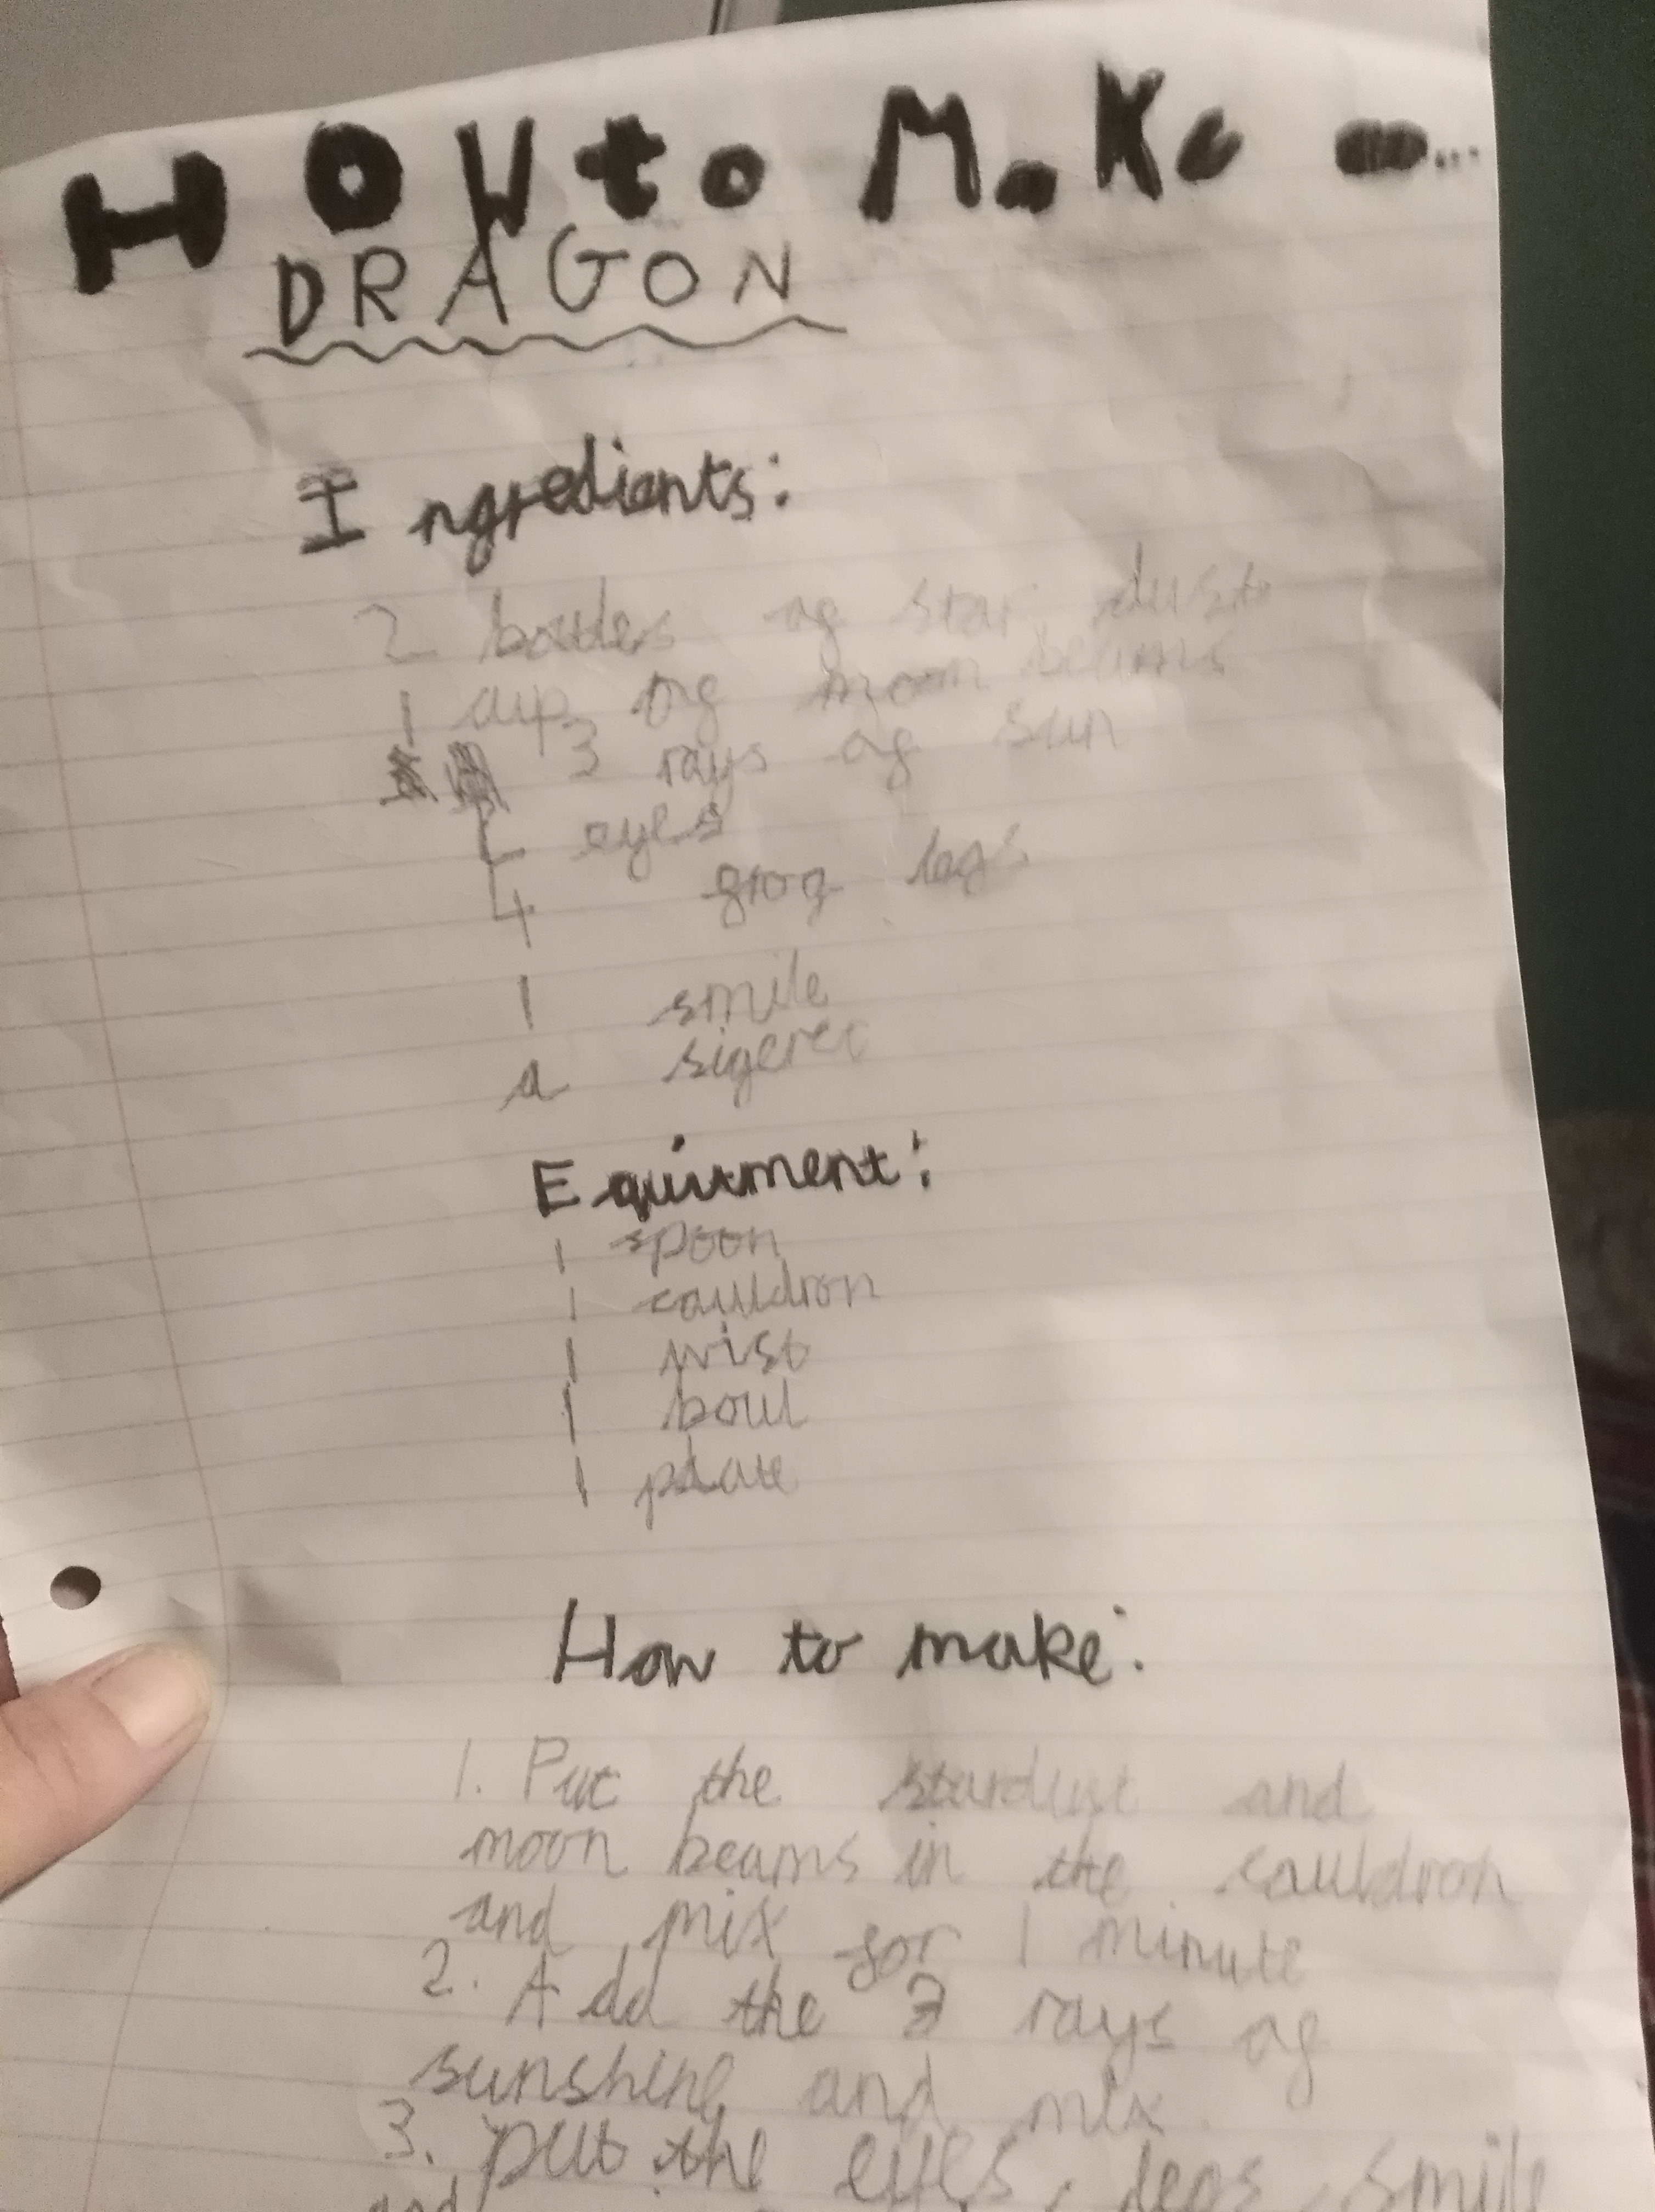 HOW to MaKe a...
DRAGON
Ingredients:
2 bottles of star dust
1 cup of moon beams
3 rays of sun
eyes
4 frog legs
1 smile
a sigeret
Equitment:
1 spoon
1 cauldron
1 wisk
1 boul
1 plate
How to make:
1. Put the stardust and
moon beams in the cauldron
and mix for 1 minute
2. Add the 3 rays of
sunshine and mix.
3. put the eyes, legs, smile
and